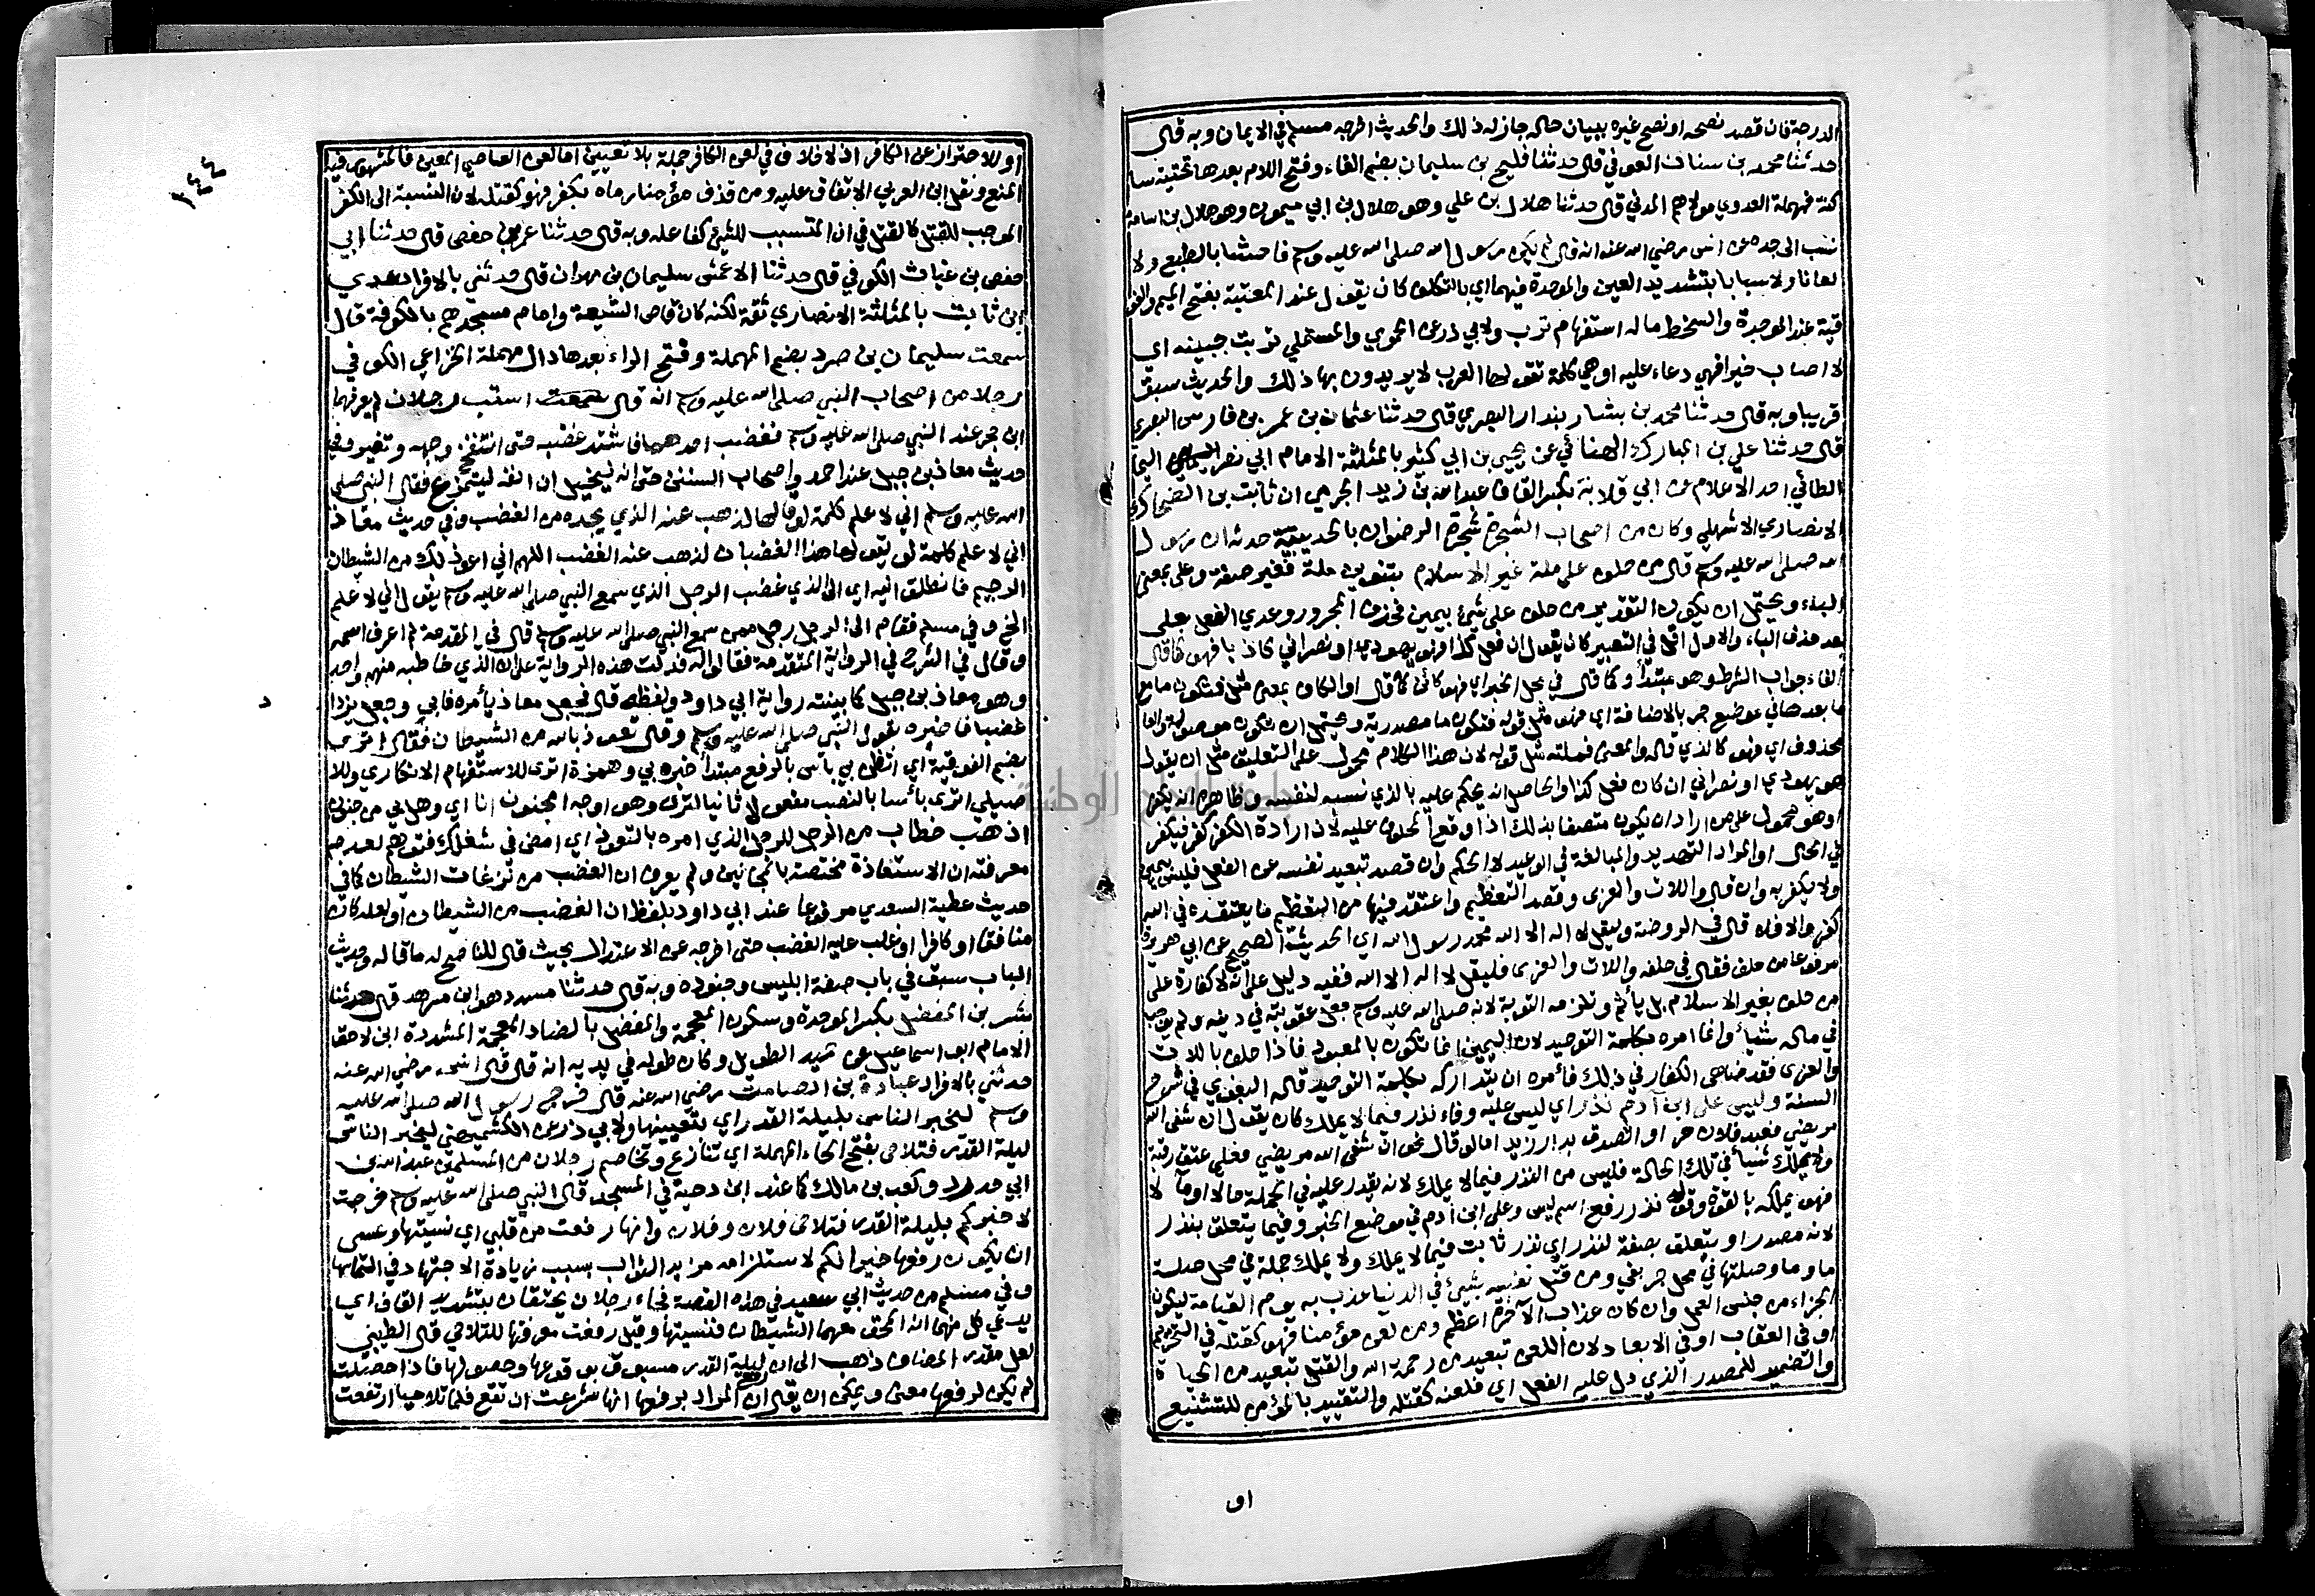 الدرجة فان قصد نصحه او نصح غيره ببيان حاله جاز له ذلك والحديث اخرجه مسلم في الايمان وبه قال
حدثنا محمد بن سنان العوفي قال حدثنا فليح بن سليمان بضم الفاء وفتح اللام بعدها تحتية سا
كنة فمهملة العدوي مولاهم المدني قال حدثنا هلال بن علي وهو هلال بن ابي ميمون وهو هلال بن اسامة
نسب الى جده عن انس رضي الله عنه انه قال لم يكن رسول الله صلى الله عليه وسلم فاحشا بالطبع ولا
لعانا ولا سبابا بتشديد العين والموحدة فيهما اي بالتكلف كان يقول عند المعتبة بفتح الميم والفو
قية عند الموجدة والسخط ماله استفهام ترب ولابي ذر عن الحموي والمستملي تربت جبينه اي
لا اصاب خيرا فهي دعاء عليه او هي كلمة تقولها العرب لا يريدون بها ذلك والحديث سبق
قريبا وبه قال حدثنا محمد بن بشار بندار البصري قال حدثنا عثمان بن عمر بن فارس البصري
قال حدثنا علي بن المبارك الهنائي عن يحيى بن ابي كثير بالمثلثة الامام ابي نصر اليما
الطائي احد الاعلام عن ابي قلابة بكسر القاف عبد الله بن زيد الجرمي ان ثابت بن الضحاك
الانصاري الاشهلي وكان من اصحاب الشجرة شجرة الرضوان بالحديبية حدثه ان رسول
الله صلى الله عليه وسلم قال من حلف على ملة غير الاسلام بتنوين ملة فغير صفة وعلى بمعنى
الباء ويحتمل ان يكون التقدير من حلف على شيئ بيمين فحذف المجرور وعدي الفعل بعلى
بعد حذف الباء والاول اقل في التعبير كان يقول ان فعل كذا فهو يهودي او نصراني كاذبا فهو كما قال
الفاء جواب الشرط وهو مبتدأ وكما قال في محل الخبر اي فهو كائن كما قال او الكاف بمعنى مثل فتكون ما مع
ما بعدها في موضع جر بالاضافة اي فهو مثل قوله فتكون ما مصدرية ويحتمل ان تكون موصولة والعا
محذوف اي فهو كالذي قاله والمعنى فمثله مثل قوله لان هذا الكلام محمول على التعليق مثل ان يقول
هو يهودي او نصراني ان كان فعل كذا والحاصل انه يحكم عليه بالذي نسبه لنفسه وظاهره انه يكفر
او هو محمول على من اراد ان يكون متصفا بذلك اذا وقع المحلوف عليه لان ارادة الكفر كفر فيكفر
في الحال او المراد التهديد والمبالغة في الوعيد لا الحكم وان قصد تبعيد نفسه عن الفعل فليس بيمين
ولا يكفر به وان قال واللات والعزى وقصد التعظيم واعتقد فيها من التعظيم ما يعتقده في الله
كفر والا فلا قال في الروضة وليقل لا اله الا الله محمد رسول الله اي الحديث الصحيح عن ابي هريرة
مرفوعا من حلف فقال في حلفه واللات والعزى فليقل لا اله الا الله ففيه دليل على انه لا كفارة على
من حلف بغير الاسلام بل يأثم وتلزمه التوبة لانه صلى الله عليه وسلم جعل عقوبته في دينه ولم يوجب
في ماله شيأ وانما امره بكلمة التوحيد لان اليمين انما تكون بالمعبود فاذا حلف باللات
والعزى فقد ضاهى الكفار في ذلك فأمره ان يتداركه بكلمة التوحيد قاله البغوي في شرح
السنة وليس على ابن آدم نذر اي ليس عليه وفاء نذر فيما لا يملك كان يقول ان شفى الله
مريضي فعبد فلان حر او اتصدق بدار زيد اما لو قال نحو ان شفى الله مريضي فعلي عتق رقبة
ولا يملك شيأ في تلك الحالة فليس من النذر فيما لا يملك لانه يقدر عليه في الجملة مالا او مآ لا
فهو يملكه بالقوة وقوله نذر رفع اسم ليس وعلى ابن آدم في موضع الخبر وفيما يتعلق بنذر
لانه مصدر او يتعلق بصفة لنذر اي نذر ثابت فيما لا يملك ولا يملك جملة في محل صلة
ما وما وصلتها في محل جر بفي ومن قتل نفسه بشيئ في الدنيا عذب به يوم القيامة ليكون
الجزاء من جنس العمل وان كان عذاب الآخرة اعظم ومن لعن مؤمنا فهو كقتله في التحريم
او في العقاب او في الابعاد لان اللعن تبعيد من رحمة الله والقتل تبعيد من الحيا ة
والضمير للمصدر الذي دل عليه الفعل اي فلعنه كقتله والتقييد بالمؤمن للتشنيع
او
١٤٤
او للاحتراز عن الكافر اذ لا خلاف في لعن الكافر جملة بلا تعيين اما لعن العاصي المعين فالمشهور فيه
المنع ونقل ابن العربي الاتفاق عليه ومن قذف مؤمنا رماه بكفر فهو كقتله لان النسبة الى الكفر
الموجب للقتل كالقتل في ان المتسبب للشيئ كفاعله وبه قال حدثنا عمر بن حفص قال حدثنا ابي
حفص بن غياث الكوفي قال حدثنا الاعمش سليمان بن مهران قال حدثني بالافراد عدي
ابن ثابت بالمثلثة الانصاري ثقة لكنه كان قاص الشيعة وامام مسجدهم بالكوفة قال
سمعت سليمان بن صرد بضم المهملة وفتح الراء بعدها دال مهملة الخزاعي الكوفي
رجلا من اصحاب النبي صلى الله عليه وسلم انه قال سمعت استب رجلان لم يعرفهما
ابن حجر عند النبي صلى الله عليه وسلم فغضب احدهما فاشتد غضبه حتى انتفخ وجهه وتغير وفي
حديث معاذ بن جبل عند احمد واصحاب السنن حتى انه ليخيل ان انفه ليتمزع فقال النبي صلى
الله عليه وسلم اني لاعلم كلمة لو قالها لذهب عنه الذي يجده من الغضب وفي حديث معاذ
اني لاعلم كلمة لو يقولها هذا الغضبان لذهب عنه الغضب اللهم اني اعوذ بك من الشيطان
الرجيم فانطلق اليه اي الى الذي غضب الرجل الذي سمع النبي صلى الله عليه وسلم يقول اني لاعلم
الخ وفي مسلم فقام الى الرجل رجل ممن سمع النبي صلى الله عليه وسلم قال في المقدمة لم اعرف اسمه
وقال في الشرح في الرواية المتقدمة فقالوا له فدلت هذه الرواية على ان الذي خاطبه منهم واحد
وهو معاذ بن جبل كما بينته رواية ابي داود ولفظه قال فجعل معاذ يأمره فابى وجعل يزدا
د
غضبا فاخبره بقول النبي صلى الله عليه وسلم وقال تعوذ بالله من الشيطان فقال اترى
بضم الفوقية اي اتظن بي بأس بالرفع مبتدأ خبره بي وهمزة اترى للاستفهام الانكاري وللا
صيلي اترى بأسا بالنصب مفعول لا ثانيا لترى وهو اوجه المجنون انا اي وهل بي من جنون
اذهب خطاب من الرجل للرجل الذي امره بالتعوذ اي امض في شغلك فتوهم لعدم
معرفته ان الاستعاذة مختصة بالمجانين ولم يعرف ان الغضب من نزغات الشيطان كما في
حديث عطية السعدي مرفوعا عند ابي داود بلفظ ان الغضب من الشيطان او لعله كان
منافقا او كافرا او غلب عليه الغضب حتى اخرجه عن الاعتدال بحيث قال للناصح له ما قاله وحديث
الباب سبق في باب صفة ابليس وجنوده وبه قال حدثنا مسدد هو ابن مسرهد قال حدثنا
بشر بن المفضل بكسر الموحدة وسكون المعجمة والمفضل بالضاد المعجمة المشددة ابن لاحق
الامام ابو اسماعيل عن حميد الطويل وكان طوله في يديه انه قال قال انس رضي الله عنه
حدثني بالافراد عبادة بن الصامت رضي الله عنه قال خرج رسول الله صلى الله عليه
وسلم ليخبر الناس بليلة القدر اي بتعيينها ولابي ذر عن الكشميهني ليخبر الناس
ليلة القدر فتلاحى بفتح الحاء المهملة اي تنازع وتخاصم رجلان من المسلمين عبد الله بن
ابي حدرد وكعب بن مالك كما عند ابن دحية في المسجد قال النبي صلى الله عليه وسلم خرجت
لاخبركم بليلة القدر فتلاحى فلان وفلان وانها رفعت من قلبي اي نسيتها وعسى
ان يكون رفعها خيرا لكم لاستلزامه مزيد الثواب بسبب زيادة الاجتهاد في التماسها
وفي مسلم من حديث ابي سعيد في هذه القصة فجاء رجلان يحتقان بتشديد القاف اي
يدعي كل منهما انه المحق معهما الشيطان فنسيتها وقيل رفعت معرفتها للتلاحي قال الطيبي
لعل مقدر المضاف ذهب الى ان ليلة القدر مسبوق بوقوعها وحصولها فاذا حصلت
لم يكن لرفعها معنى ويمكن ان يقال ان المراد برفعها انها شرعت ان تقع فلما تلاحيا ارتفعت